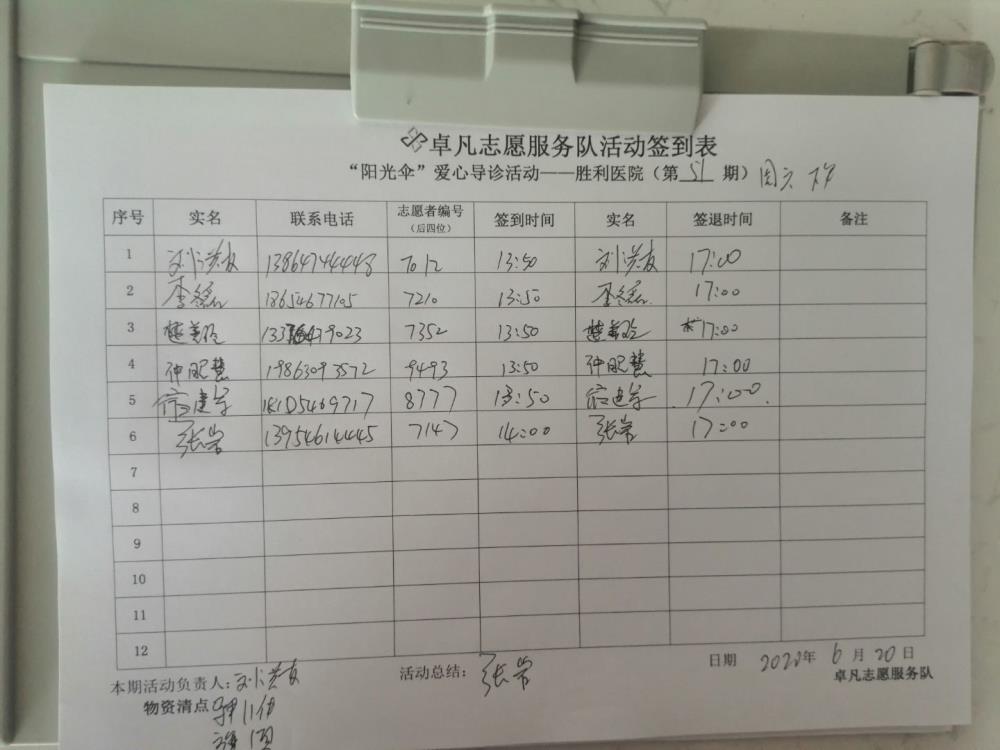 卓凡志愿服务队活动签到表
“阳光伞”爱心导诊活动——胜利医院（第 51 期） 周六 下午
序号 实名 联系电话 志愿者编号（后四位） 签到时间 实名 签退时间 备注
1 刘洪友 13864744448 7012 13:50 刘洪友 17:00
2 18654677105 7210 13:50 17:00
3 楚美玲 9023 7352 13:50 楚美玲 17:00
4 仲昭慧 19863093572 9493 13:50 仲昭慧 17:00
5 建 5469717 8777 13:50 建 17:00
6 张岩 13954614445 7147 14:00 张岩 17:00
7
8
9
10
11
12
本期活动负责人：刘洪友 活动总结：张岩 日期 2020年 6 月 20 日
物资清点 卓凡志愿服务队